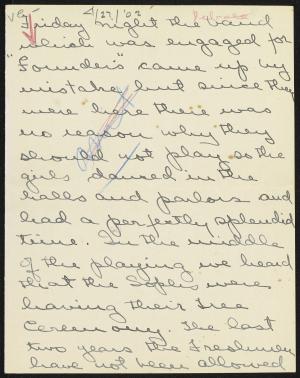 4/27/02
Friday night the band
which was engaged for
"Founder's" came up by
mistake, but since they
were here there was
no reason why they
should not play, so the
girls danced in the
halls and parlors and
had a perfectly splendid
time. In the middle
of the playing we heard
that the Sophs were
having their Tree
Ceremony. The last
two years the Freshmen
have not been allowed